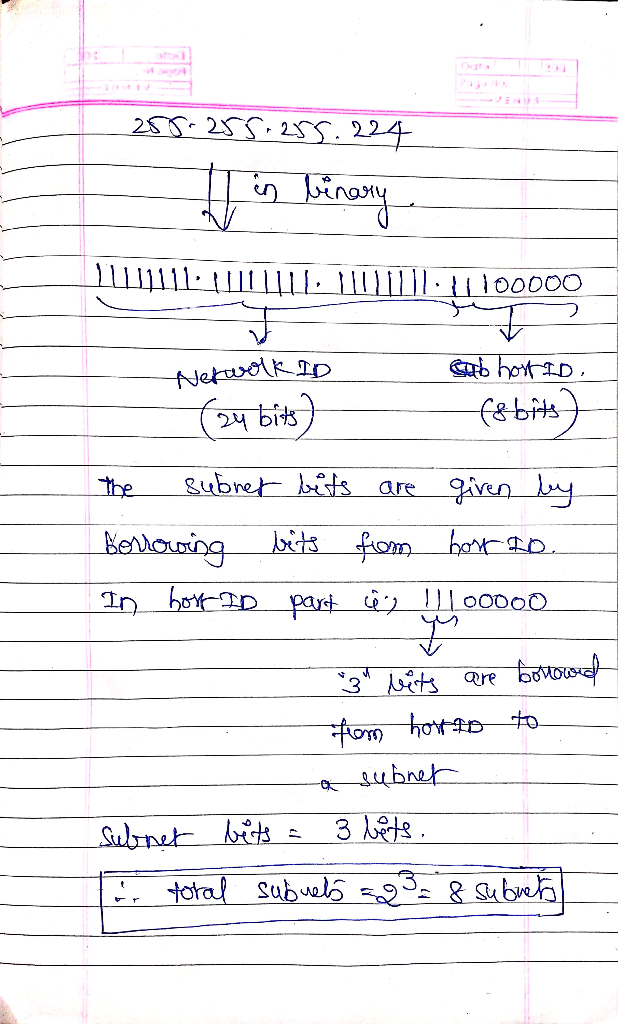 255.255.255.224
in binary.
11111111.11111111.11111111.11100000
Network ID host ID.
(24 bits) (8 bits)
The subnet bits are given by
borrowing bits from host ID.
In host ID part ie; 11100000
"3" bits are borrowed
from host ID to
a subnet
Subnet bits = 3 bits.
∴ total subnets = 2³ = 8 subnets